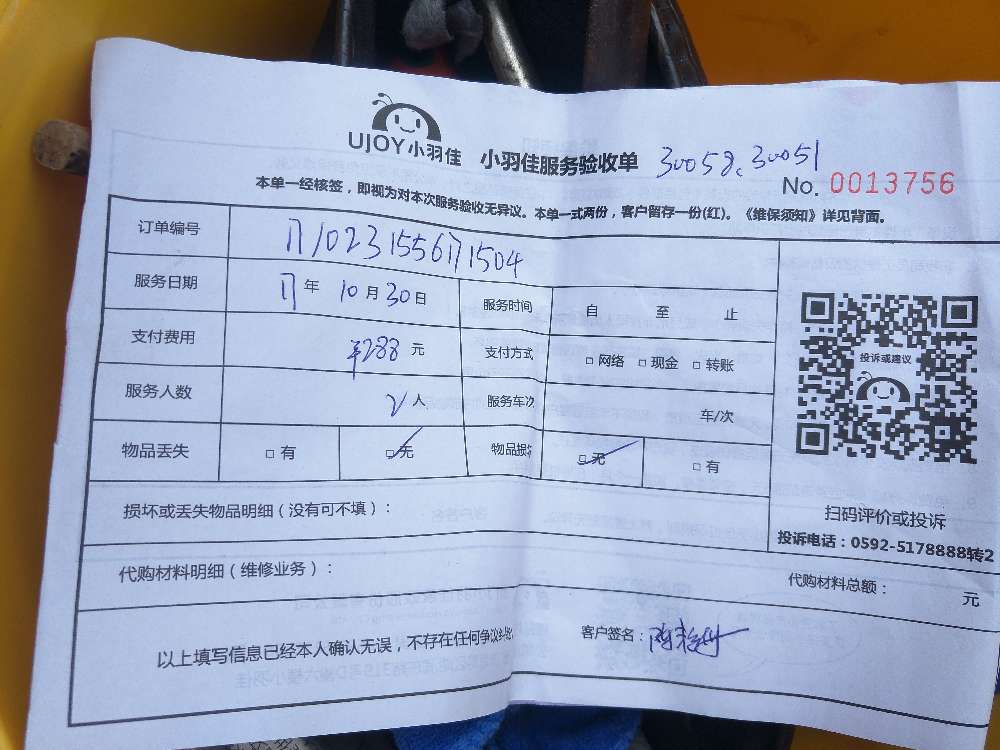 UJOY小羽佳 小羽佳服务验收单 30058、30051
No. 0013756
本单一经核签，即视为对本次服务验收无异议。本单一式两份，客户留存一份(红)。《维保须知》详见背面。
订单编号 1710231556171504
服务日期 17年 10月30日 服务时间 自 至 止
支付费用 ¥288 元 支付方式 □网络 □现金 □转账
投诉或建议
服务人数 2人 服务车次 车/次
物品丢失 □有 □无 物品损 □无 □有
损坏或丢失物品明细（没有可不填）：
扫码评价或投诉
投诉电话：0592-5178888转2
代购材料明细（维修业务）： 代购材料总额： 元
以上填写信息已经本人确认无误，不存在任何争议 客户签名：